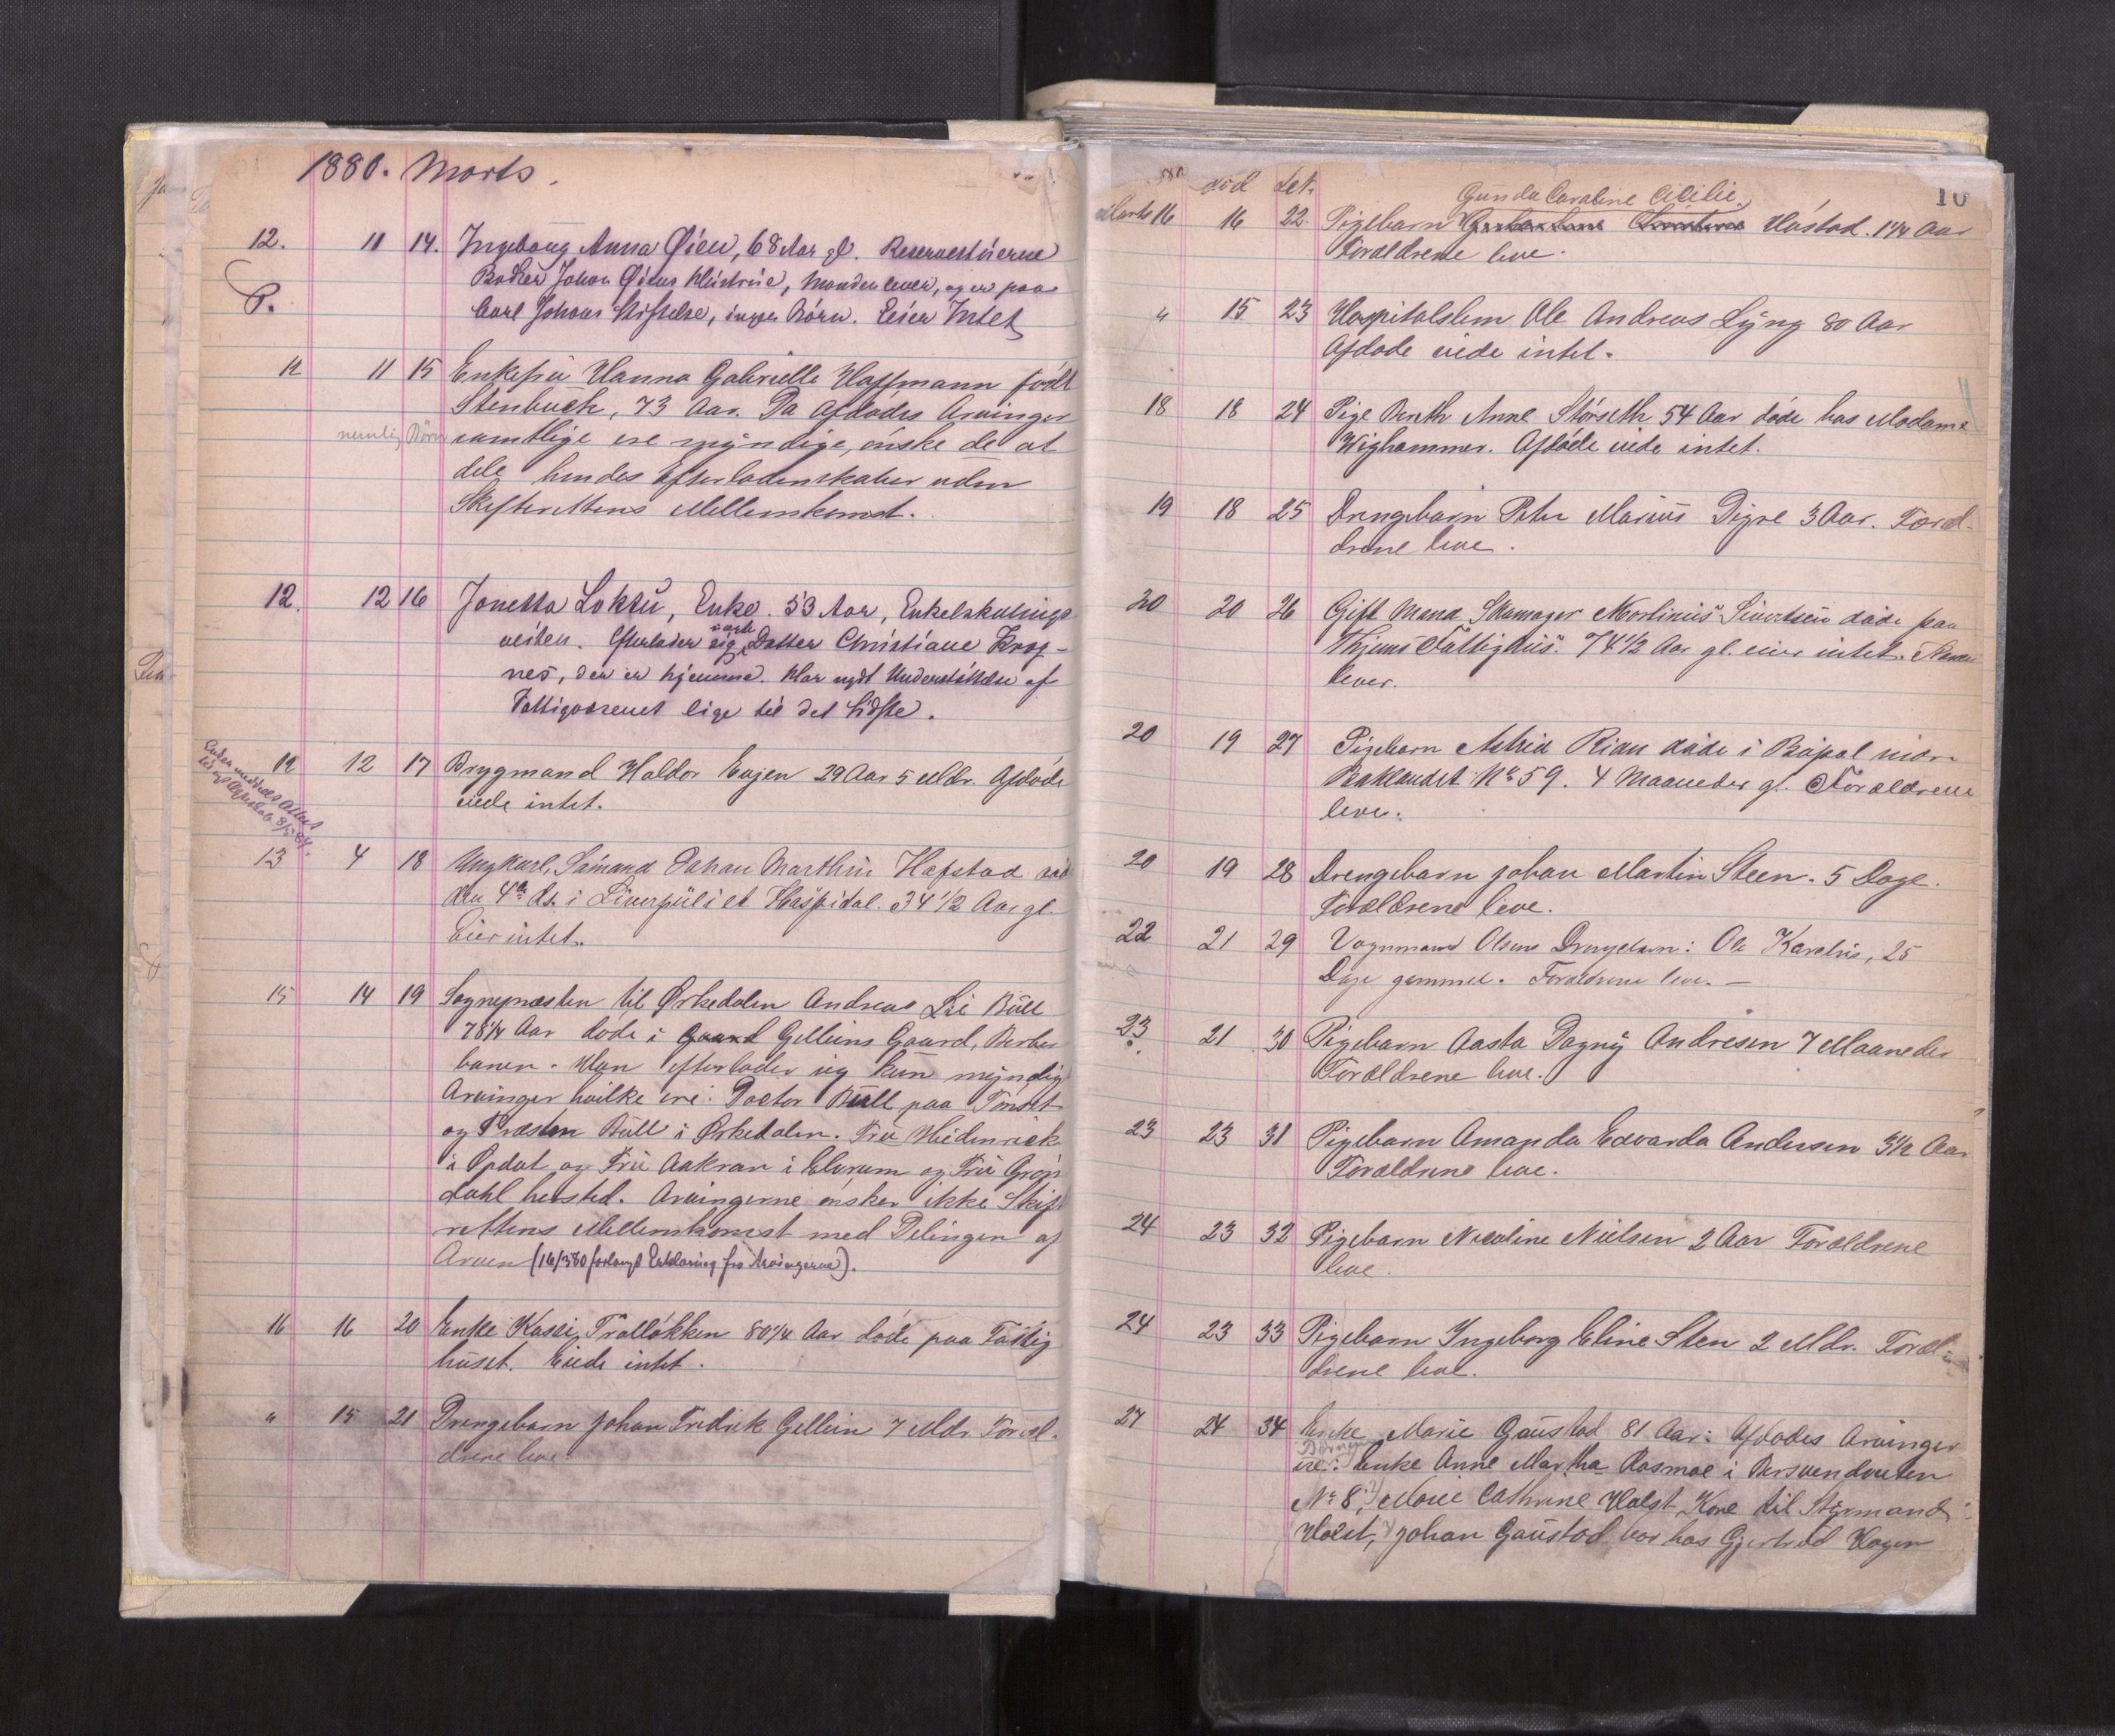 1880. Marts.
12. 11 14. Ingeborg Anna Øien, 68 Aar gl. Reservestuerne
Johan Øiens Hustrue, Manden lever, og er paa
P. Carl Johans Stiftelse, ingen Børn. Eier Intet
12 11 15 Enkefru Hanna Gabrielle Hoffmann født
Stenbuch, 73 Aar. Da Afdødes Arvinger
nemlig Børn samtlige ere myndige, ønske de at
dele hendes Efterladenskaber uden
Skifterettens Mellemkomst.
12. 12 16 Jonetta Loktu, Enke. 53 Aar, Enkelskillings
veiten. Efterlader sig Datter Christiane Krog-
nes, der er hjemme. Har nydt Understøttelse af
Fattigvæsenet lige til det Sidste.
12 12 17 Brygmand Haldor Eujen 29 Aar 5 Mdr. Afdøde
eiede intet.
13 4 18 Ungkarl, Sømand Johan Marthin Hafstad død
den 4de ds. i Liverpul i et Haspidal. 34 1/2 Aar gl.
Eier intet.
15 14 19 Sognepræsten til Ørkedalen Andreas Lie Bull
78 1/4 Aar døde i Gaard Gelleins Gaard,
banen. Han efterlader sig kun myndig
Arvinger hvilke ere: Doctor Bull paa Tønset
og Præsten Bull i Ørkedalen. Fru
i Opdal og Fru Aakran i Elverum og Fru Grøn
dahl hersted. Arvingerne ønsker ikke Skif
rettens Mellemkomst med Delingen af
Arven (16/3 80 forlangt Erklæring fra Arvingerne).
16 16 20 Enke Kasei Trolløkken 80 1/4 Aar døde paa Fattig
huset. Eiede intet.
" 15 21 Drengebarn Johan Fredrik Gellein 7 Mdr. Foræl-
drene leve
død Let. 10
Gunda Caroline Cicilie.
Marts 16 16 22. Pigebarn Hustad. 1 1/4 Aar
Forældrene leve.
" 15 23 Hospitalslem Ole Andreas Lyng 80 Aar
Afdøde eiede intet.
18 18 24 Pige Berith Anne Størseth 54 Aar døde hos Madame
Wighammer. Afdøde eiede intet.
19 18 25 Drengebarn Peter Marius Digre 3 Aar. Foræl-
drene leve.
20 20 26 Gift Mand Skomager Martinius Sivertsen døde paa
Thjems Fattighus. 74 1/2 Aar gl. eier intet. Konen
lever.
20 19 27 Pigebarn Astrid Rian døde i Bopæl nedre
Baklandet No 59. 4 Maaneder gl. Forældrene
leve.
20 19 28 Drengebarn Johan Martin Steen. 5 Dage.
Forældrene leve.
22 21 29 Vognmand Olsens Drengebarn: Ole Karelius, 25
Dage gammel. Forældrene leve. —
23 21 30 Pigebarn Aasta Dagny Andresen 7 Maaneder
Forældrene leve.
23 23 31 Pigebarn Amanda Edvarda Andersen 3 1/2 Aar
Forældrene leve.
24 23 32 Pigebarn Nicoline Nielsen 2 Aar Forældrene
leve.
24 23 33 Pigebarn Ingeborg Eline Sten 2 Mdr. Foræl-
drene leve.
27 24 34 Enke Marie Gaustad 81 Aar: Afdødes Arvinger
ere: Enke Anne Martha Aasmoe i Persvendveiten
No 8, Marie Cathrine Holst Kone til Styrmand
Holst, Johan Gaustad bor hos Gjertrud Hagen